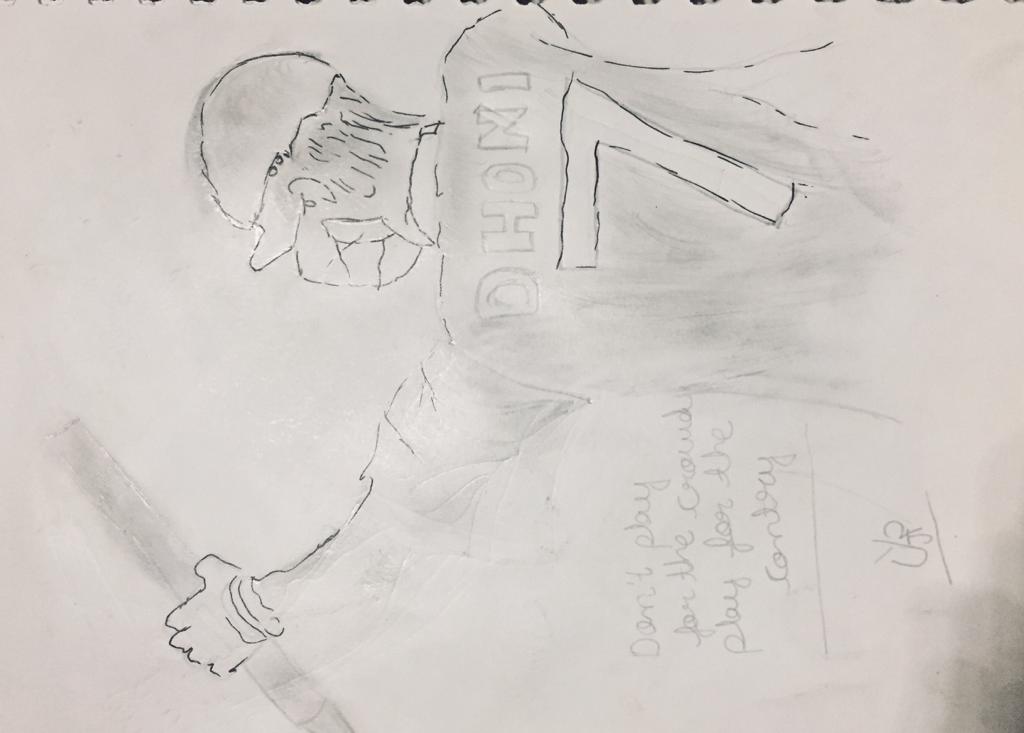 DHONI
7
Don't play
for the crowd
play for the
contry